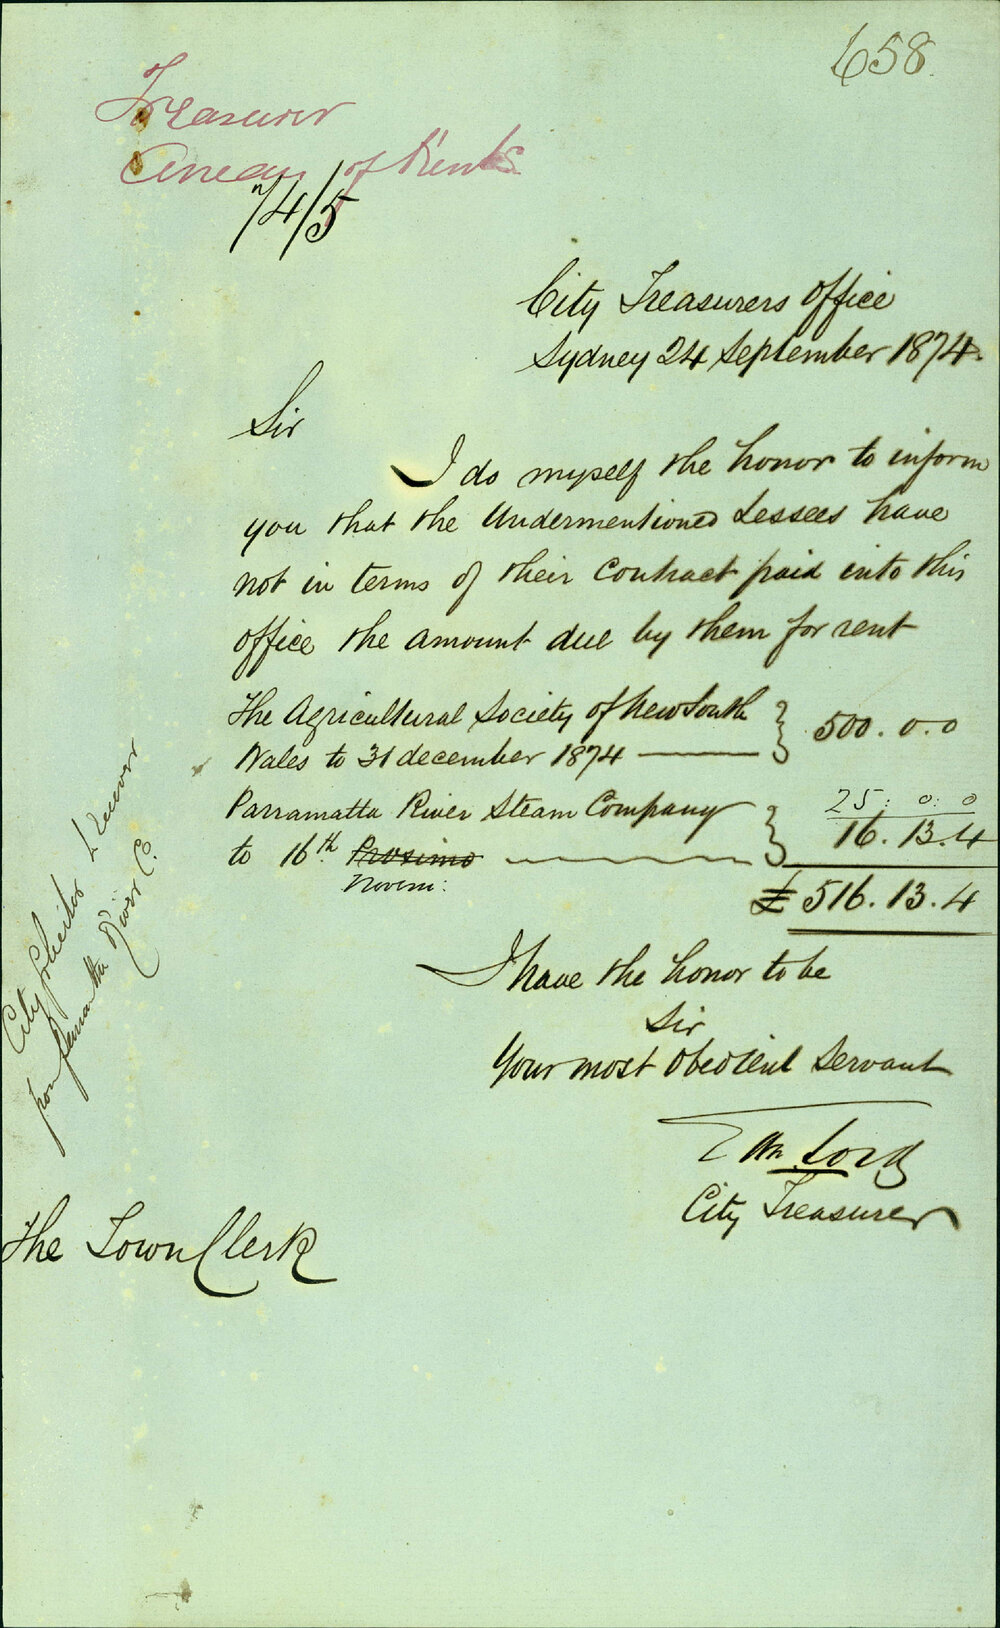 658.
Treasurer
Arrears of Rents
74/5
City Treasurers Office
Sydney 24 September 1874.
Sir
I do myself the honor to inform
you that the Undermentioned Lessees have
not in terms of their Contract paid into this
office the amount due by them for rent
The Agricultural Society of New South
Wales to 31 december 1874 } 500. 0. 0
Parramatta River Steam Company } 25: 0: 0
16. 13. 4
to 16th Proximo
Novem:
£ 516. 13. 4
I have the honor to be
Sir
Your most Obedient Servant
Wm Lord
City Treasurer
The Town Clerk
City Solicitor
Parramatta River Co.